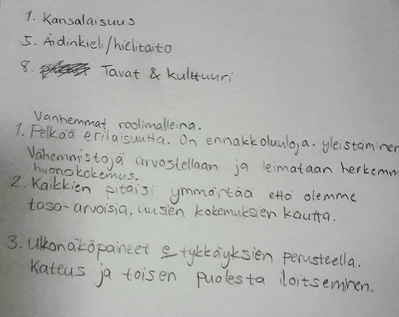 1. Kansalaisuus
5. Äidinkieli/kielitaito
8. Tavat & kulttuuri
Vanhemmat roolimalleina.
1. Pelkää erilaisuutta. On ennakkoluuloja. yleistäminen
Vähemmistöjä arvostellaan ja leimataan herkemm
huonokokemus.
2. Kaikkien pitäisi ymmärtää että olemme
tasa-arvoisia, uusen kokemuksen kautta.
3. Ulkonäköpaineet tykkäyksien perusteella.
Kateus ja toisen puolesta iloitseminen.